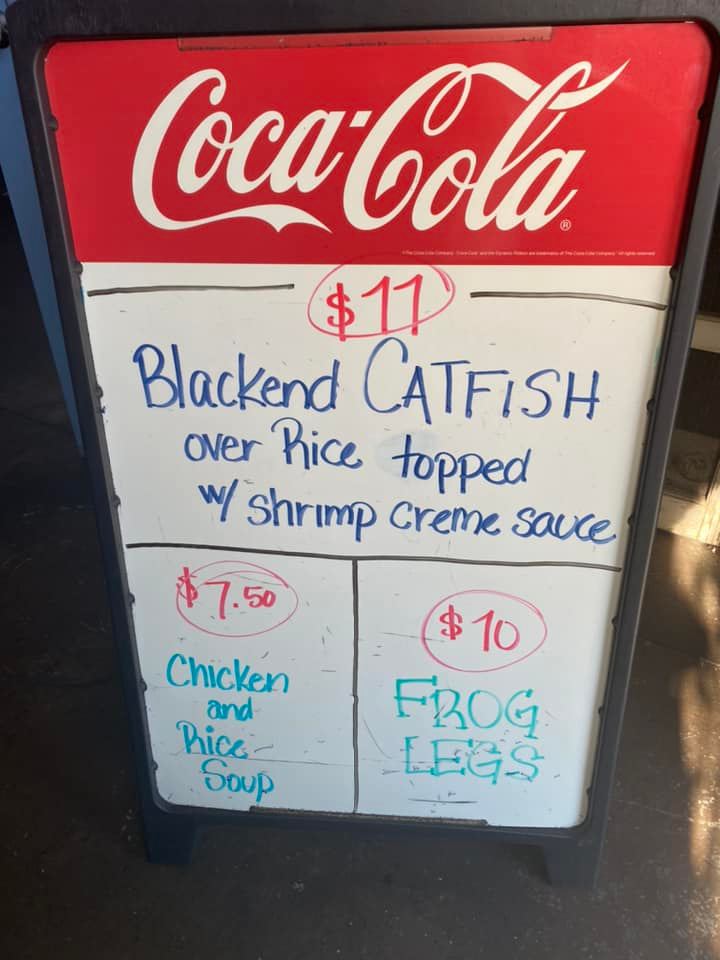 Coca-Cola
®
$11
Blackend CATFISH
over Rice topped
w/ shrimp creme sauce
$7.50
Chicken
and
Rice
Soup
$10
FROG
LEGS